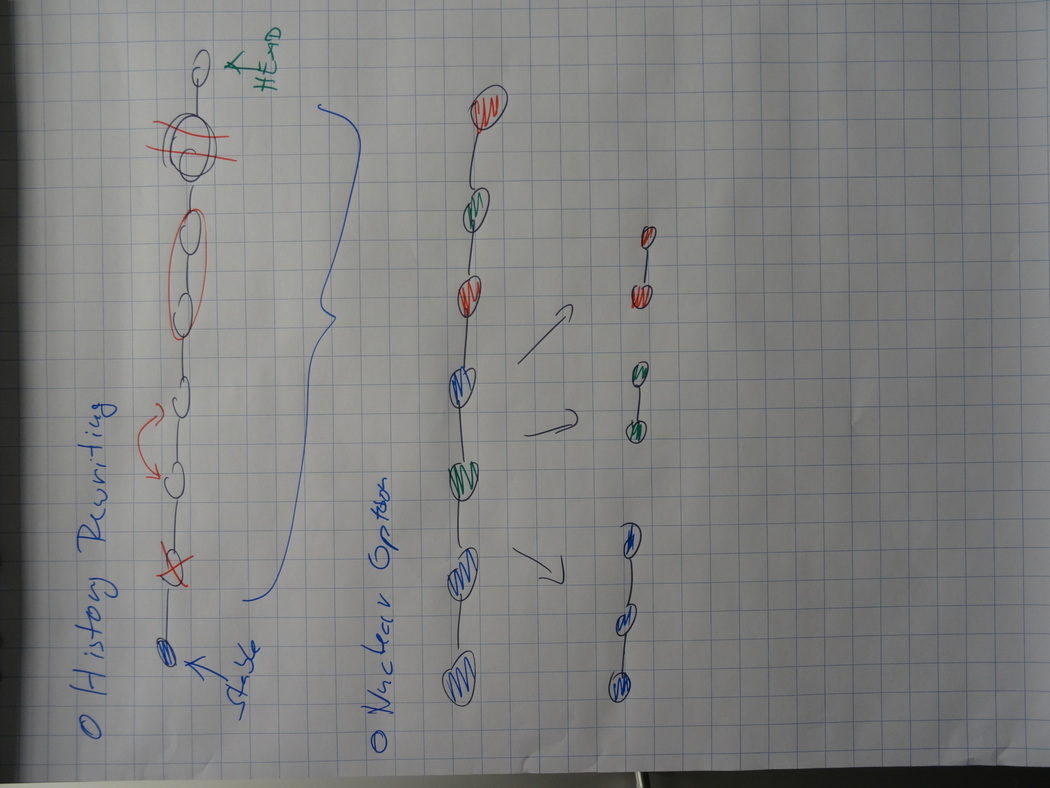 History Rewriting
Stable
HEAD
Nuclear Option